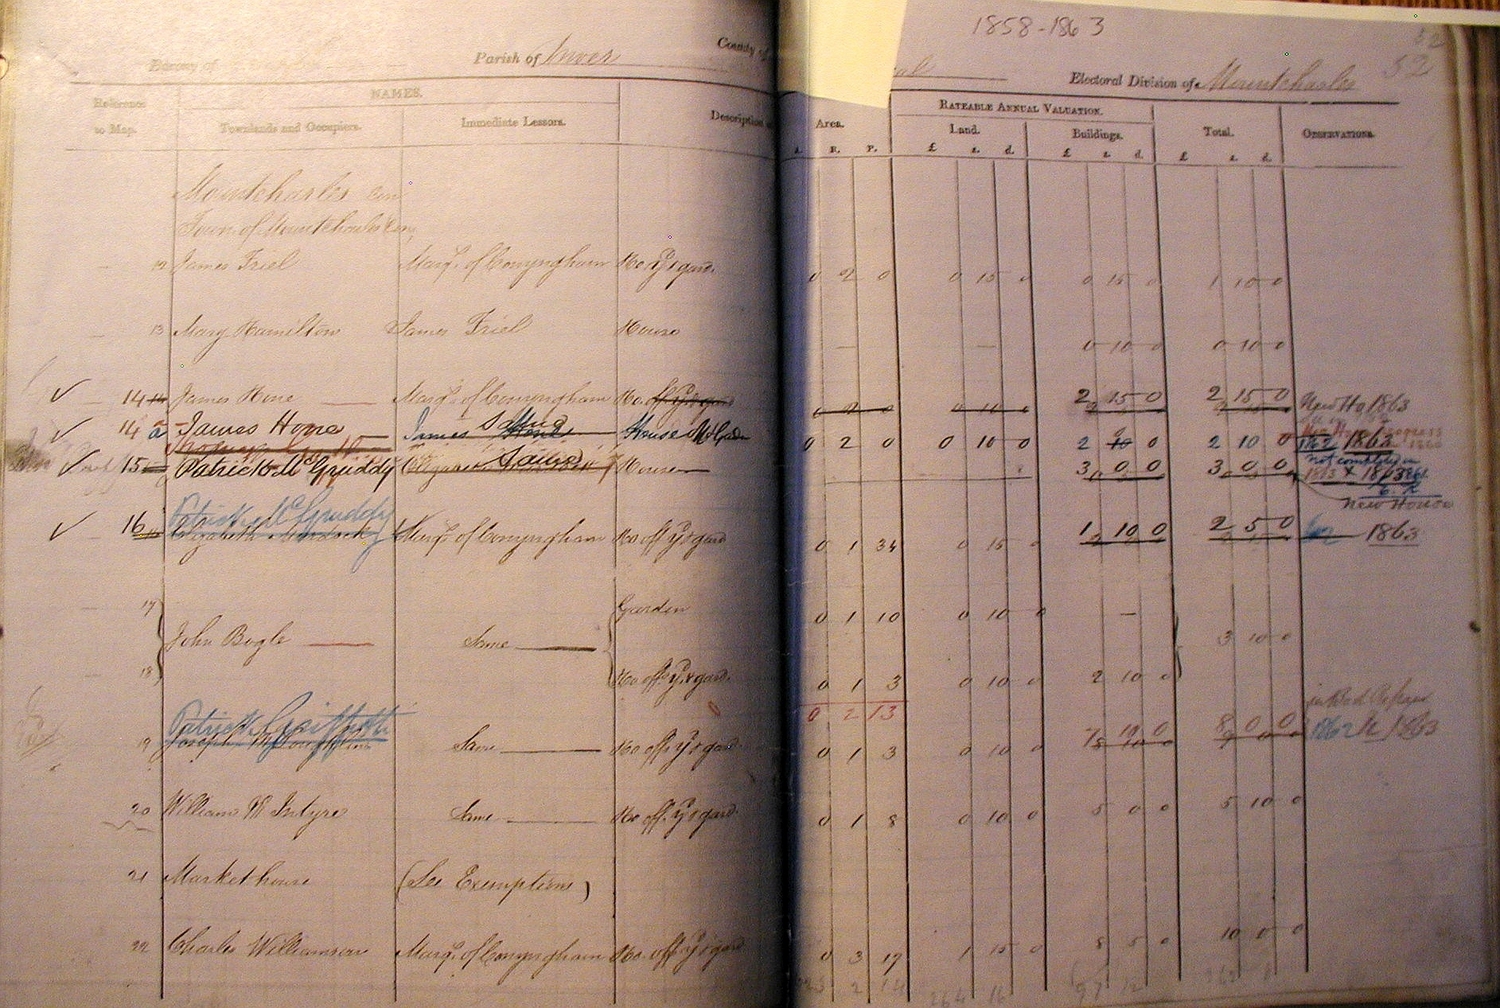 1858-1863
52
52
Barony of
Parish of Inver
County of
Electoral Division of Mountcharles
Reference to Map.
NAMES.
Townlands and Occupiers.
Immediate Lessors.
Description
Area.
A. R. P.
RATEABLE ANNUAL VALUATION.
Land.
£ s. d.
Buildings.
£ s. d.
Total.
£ s. d.
OBSERVATIONS.
Mountcharles Con
Town of Mountcharles Con
12 James Friel Marqs. of Conyngham Ho. yd. & gard. 0 2 0 0 15 0 0 15 0 1 10 0
13 Mary Hamilton James Friel House — — 0 10 0 0 10 0
14 James Hone Marqs. of Conyngham Ho. off. yd. & gard 2 0 10 2 15 0 2 15 0 New Ho 1863
14 a James Horne James Same House 0 2 0 0 10 0 2 0 2 10 0 1862 1863
15 Patrick McGruddy Elizabeth Same House 3 0 0 3 0 0 1863
not completed
New House
Patrick McGruddy
16 Elizabeth Marqs. of Conyngham Ho. off. yd. & gard 0 1 34 0 15 0 1 10 0 2 5 0 1863
17 Garden 0 1 10 0 10 0 —
John Bogle Same 3 10 0
18 Ho. off. yd. & gard. 0 1 3 0 10 0 2 10 0
0 2 13
in Bad Repair
Patrick Griffith
19 Joseph McLoughlin Same Ho. off. yd. & gard 0 1 3 0 10 0 7 10 0 8 0 0 1862 1863
20 William McIntyre Same Ho. off. yd. & gard 0 1 8 0 10 0 5 0 0 5 10 0
21 Market house (See Exemptions)
22 Charles Williamson Marqs. of Conyngham Ho. off. yd. & gard 0 3 17 1 15 0 8 5 0 10 0 0
2 14 264 16 97 12